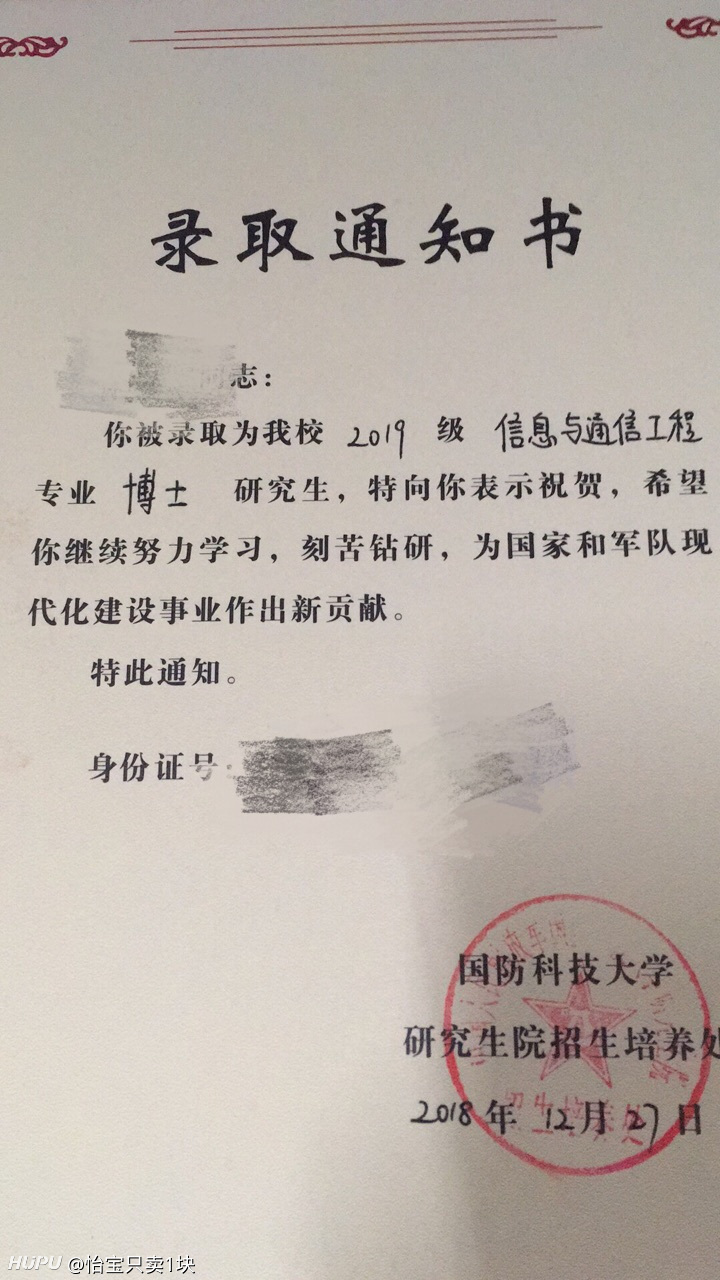 录取通知书
同志：
你被录取为我校 2019 级 信息与通信工程
专业 博士 研究生，特向你表示祝贺，希望
你继续努力学习，刻苦钻研，为国家和军队现
代化建设事业作出新贡献。
特此通知。
身份证号：
国防科技大学
研究生院招生培养处
2018 年 12 月 27 日
HUPU @怡宝只卖1块